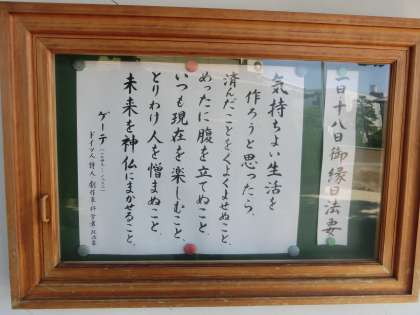 一日十八日御縁日法要
気持ちよい生活を
作ろうと思ったら、
済んだことをくよくよせぬこと、
めったに腹を立てぬこと、
いつも現在を楽しむこと、
とりわけ人を憎まぬこと、
未来を神仏にまかせること。
ゲーテ
ドイツ人 詩人 劇作家 科学者 政治家